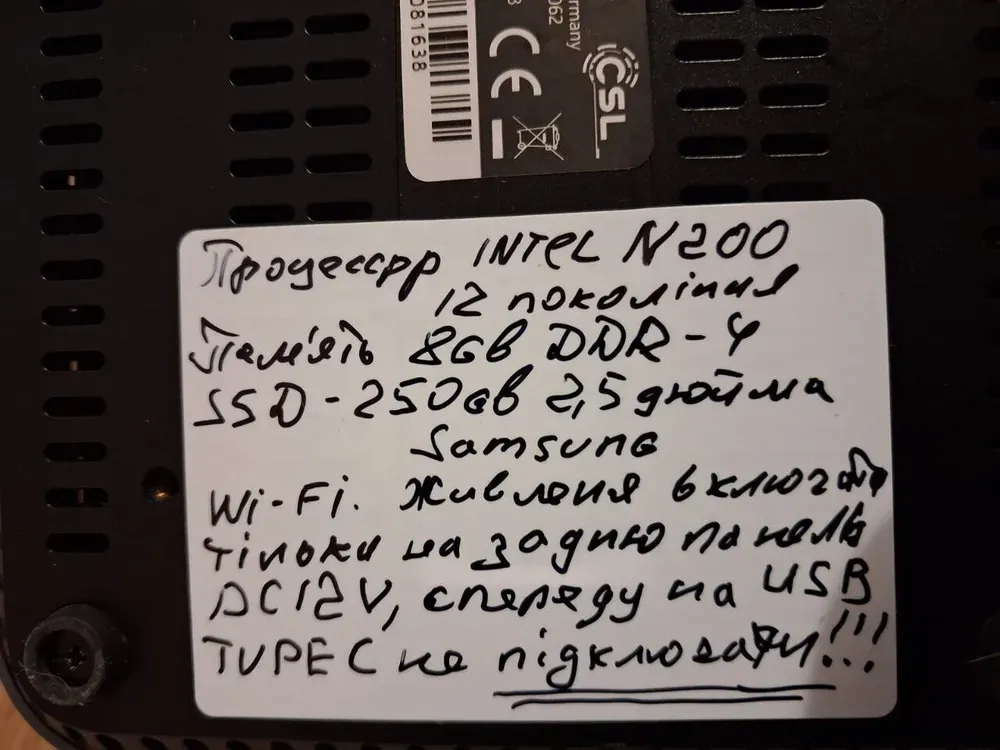 081638
CE
CSL
Процессрр INTEL N200
12 поколіния
Пам'ять 8GB DDR-4
SSD-250GB 2,5 дюйма
Samsung
Wi-Fi. Живленя включати
тільки на задню панель
DC12V, спереду на USB
TYPEC не підключати!!!